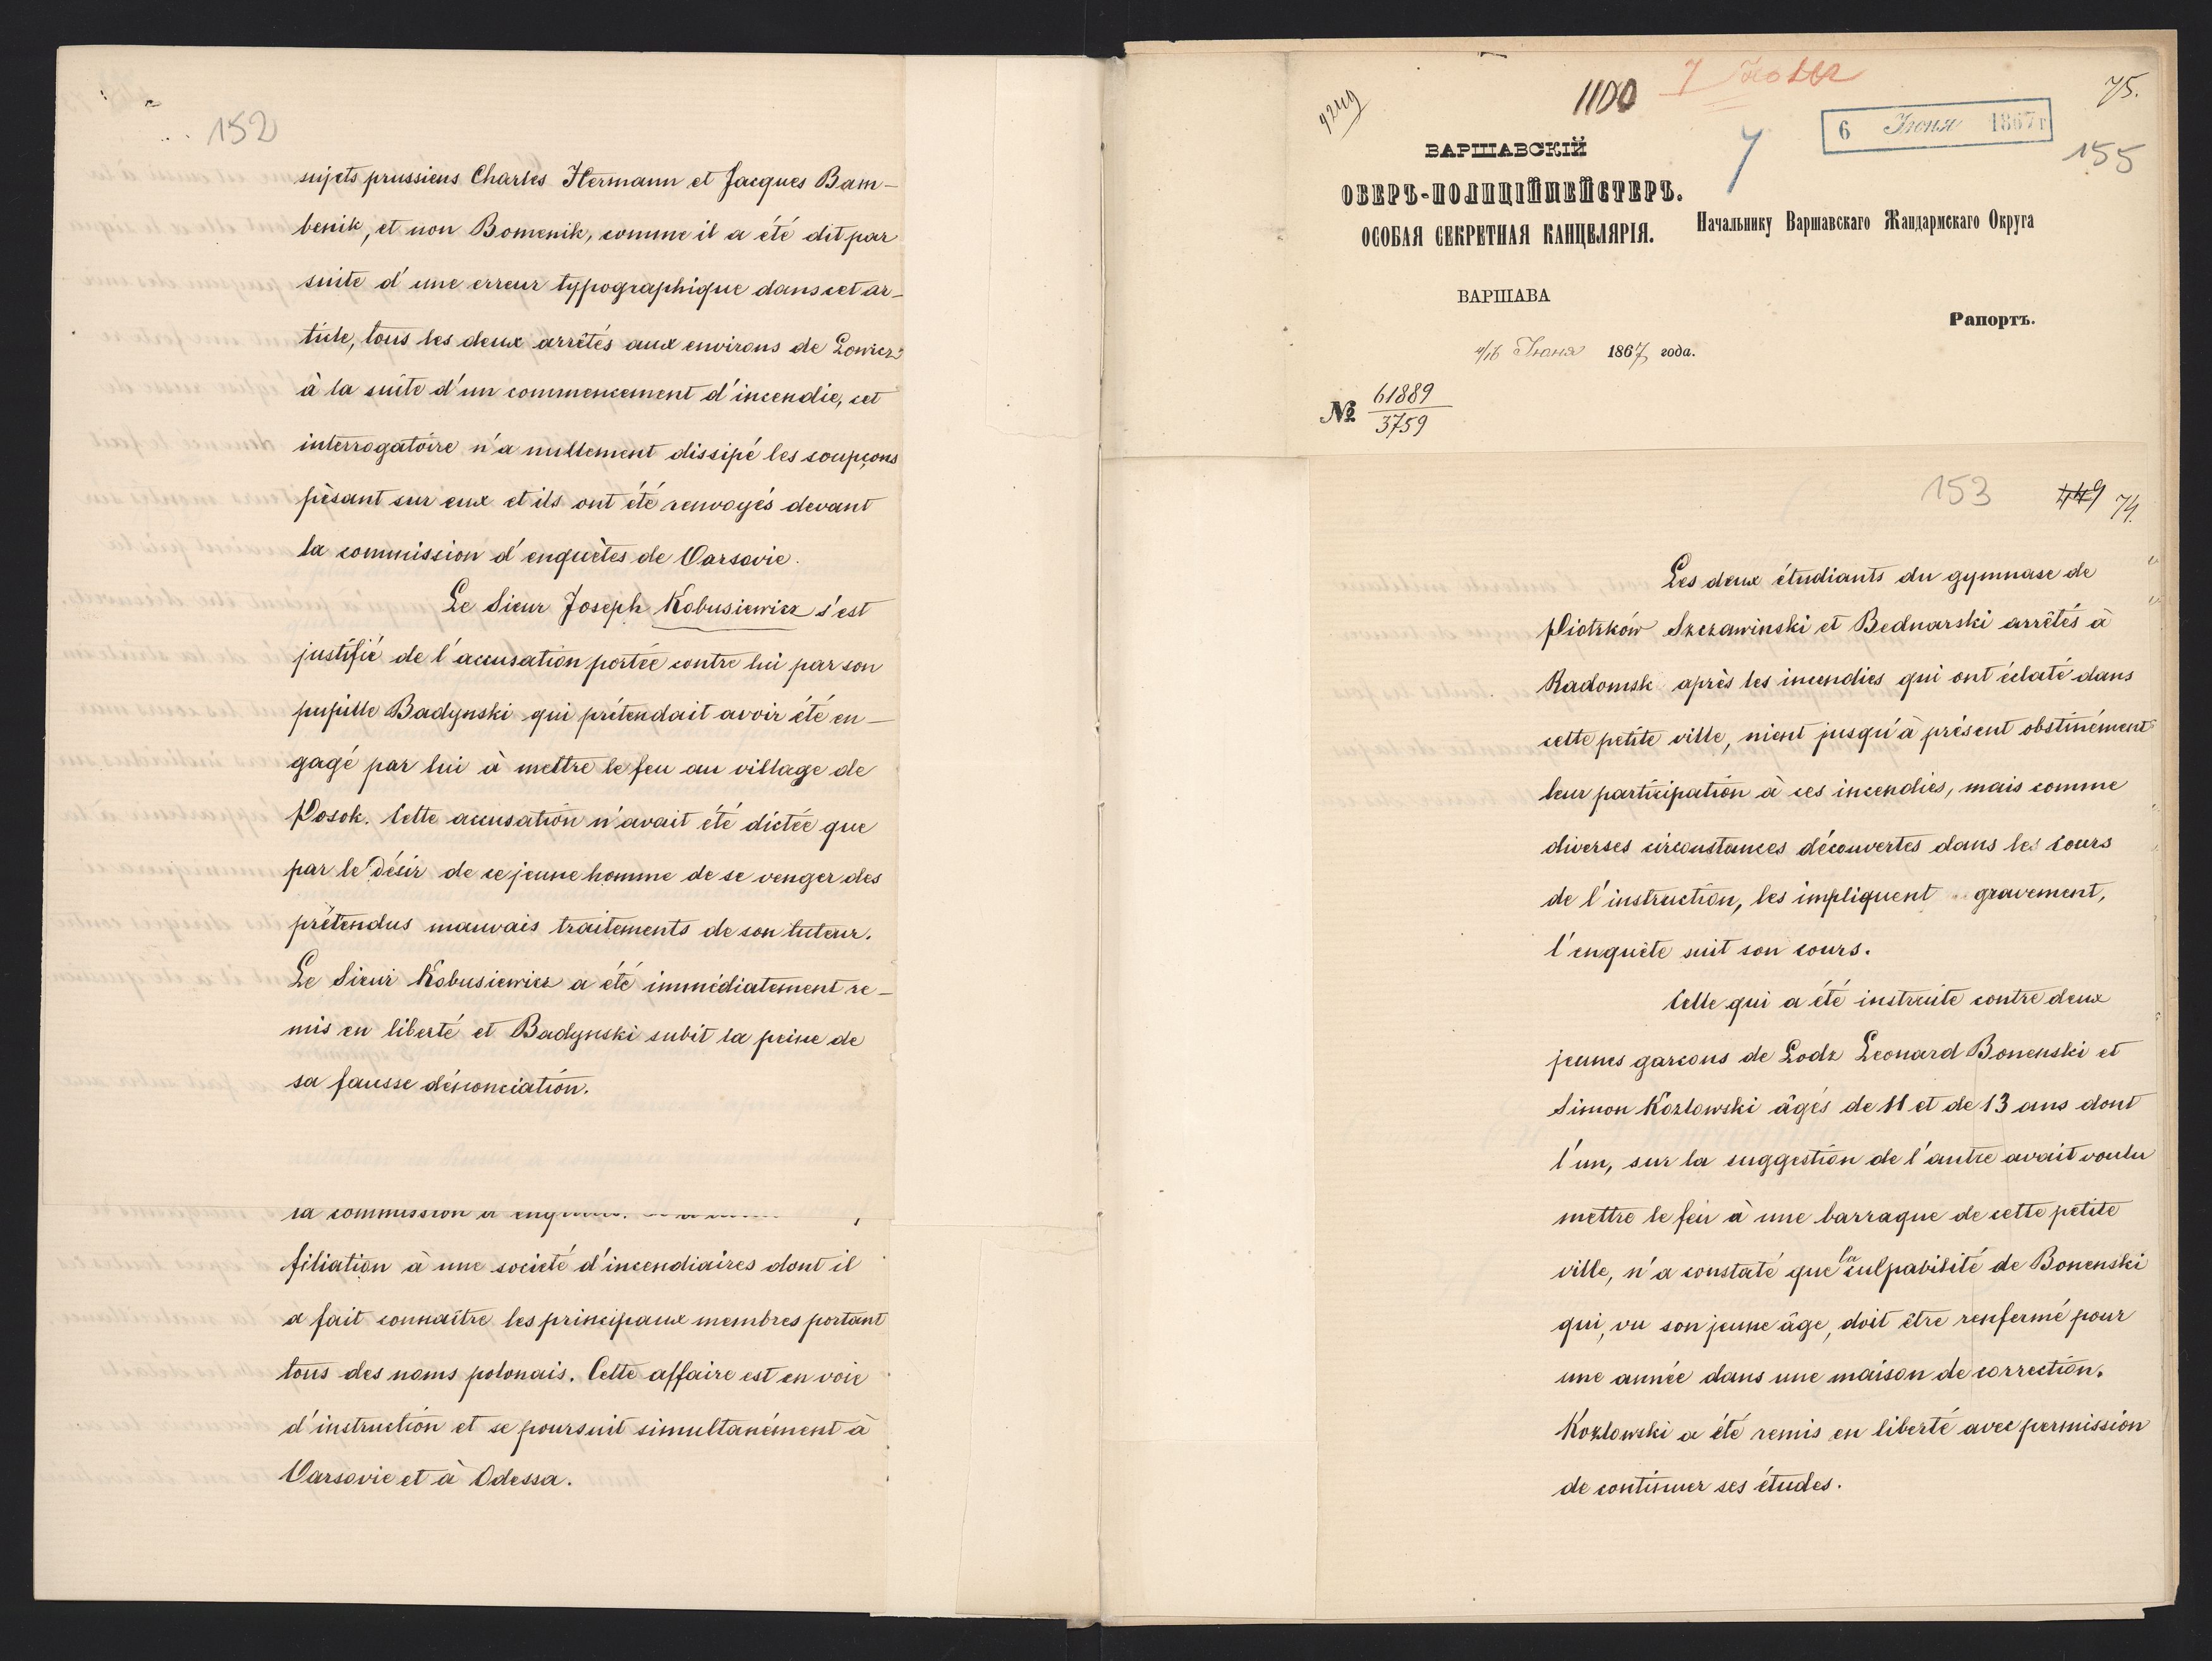 152
sujets prussiens Charles Hermann et Jacques Bam-
benik, et non Bomenik, comme il a été dit par
suite d'une erreur typographique dans cet ar-
ticle, tous les deux arrêtés aux environs de Lowicz
à la suite d'un commencement d'incendie, cet
interrogatoire n'a nullement dissipé les soupçons
pèsant sur eux et ils ont été renvoyés devant
la commission d'enquètes de Varsovie.
Le Sieur Joseph Kobusiewicz s'est
justifié de l'accusation portée contre lui par son
pupille Badynski qui prétendait avoir été en-
gagé par lui à mettre le feu au village de
Posok. Cette accusation n'avait été dictée que
par le désir de ce jeune homme de se venger des
prétendus mauvais traitements de son tuteur.
Le Sieur Kobusiewicz a été immédiatement re-
mis en liberté et Badynski subit la peine de
sa fausse dénonciation.
la commission d'enquètes.
filiation à une societé d'incendiaires dont il
a fait connaître les principaux membres portant
tous des noms polonais. Cette affaire est en voie
d'instruction et se poursuit simultanément à
Varsovie et à Odessa.
9249
1100
75.
6 Июня 1867 г
155
ВАРШАВСКІЙ
ОБЕРЪ-ПОЛИЦІЙМЕЙСТЕРЪ.
ОСОБАЯ СЕКРЕТНАЯ КАНЦЕЛЯРІЯ.
Начальнику Варшавскаго Жандармскаго Округа
ВАРШАВА
Рапортъ.
4/16 Июня 1867 года.
№ 61889
3759
153
449 74.
Les deux étudiants du gymnase de
Piotrków Szczawinski et Bednarski arrêtés à
Radomsk après les incendies qui ont éclaté dans
cette petite ville, nient jusqu'à présent obstinément
leur participation à ces incendies, mais comme
diverses circonstances découvertes dans les cours
de l'instruction, les impliquent gravement,
l'enquète suit son cours.
Celle qui a été instruite contre deux
jeunes garcons de Lodz Leonard Bonenski et
Simon Kozlowski âgés de 11 et de 13 ans dont
l'un, sur la suggestion de l'autre avait voulu
mettre le feu à une barraque de cette petite
ville, n'a constaté que la culpabilité de Bonenski
qui, vu son jeune âge, doit être renfermé pour
une année dans une maison de correction.
Kozlowski a été remis en liberté avec permission
de continuer ses études.